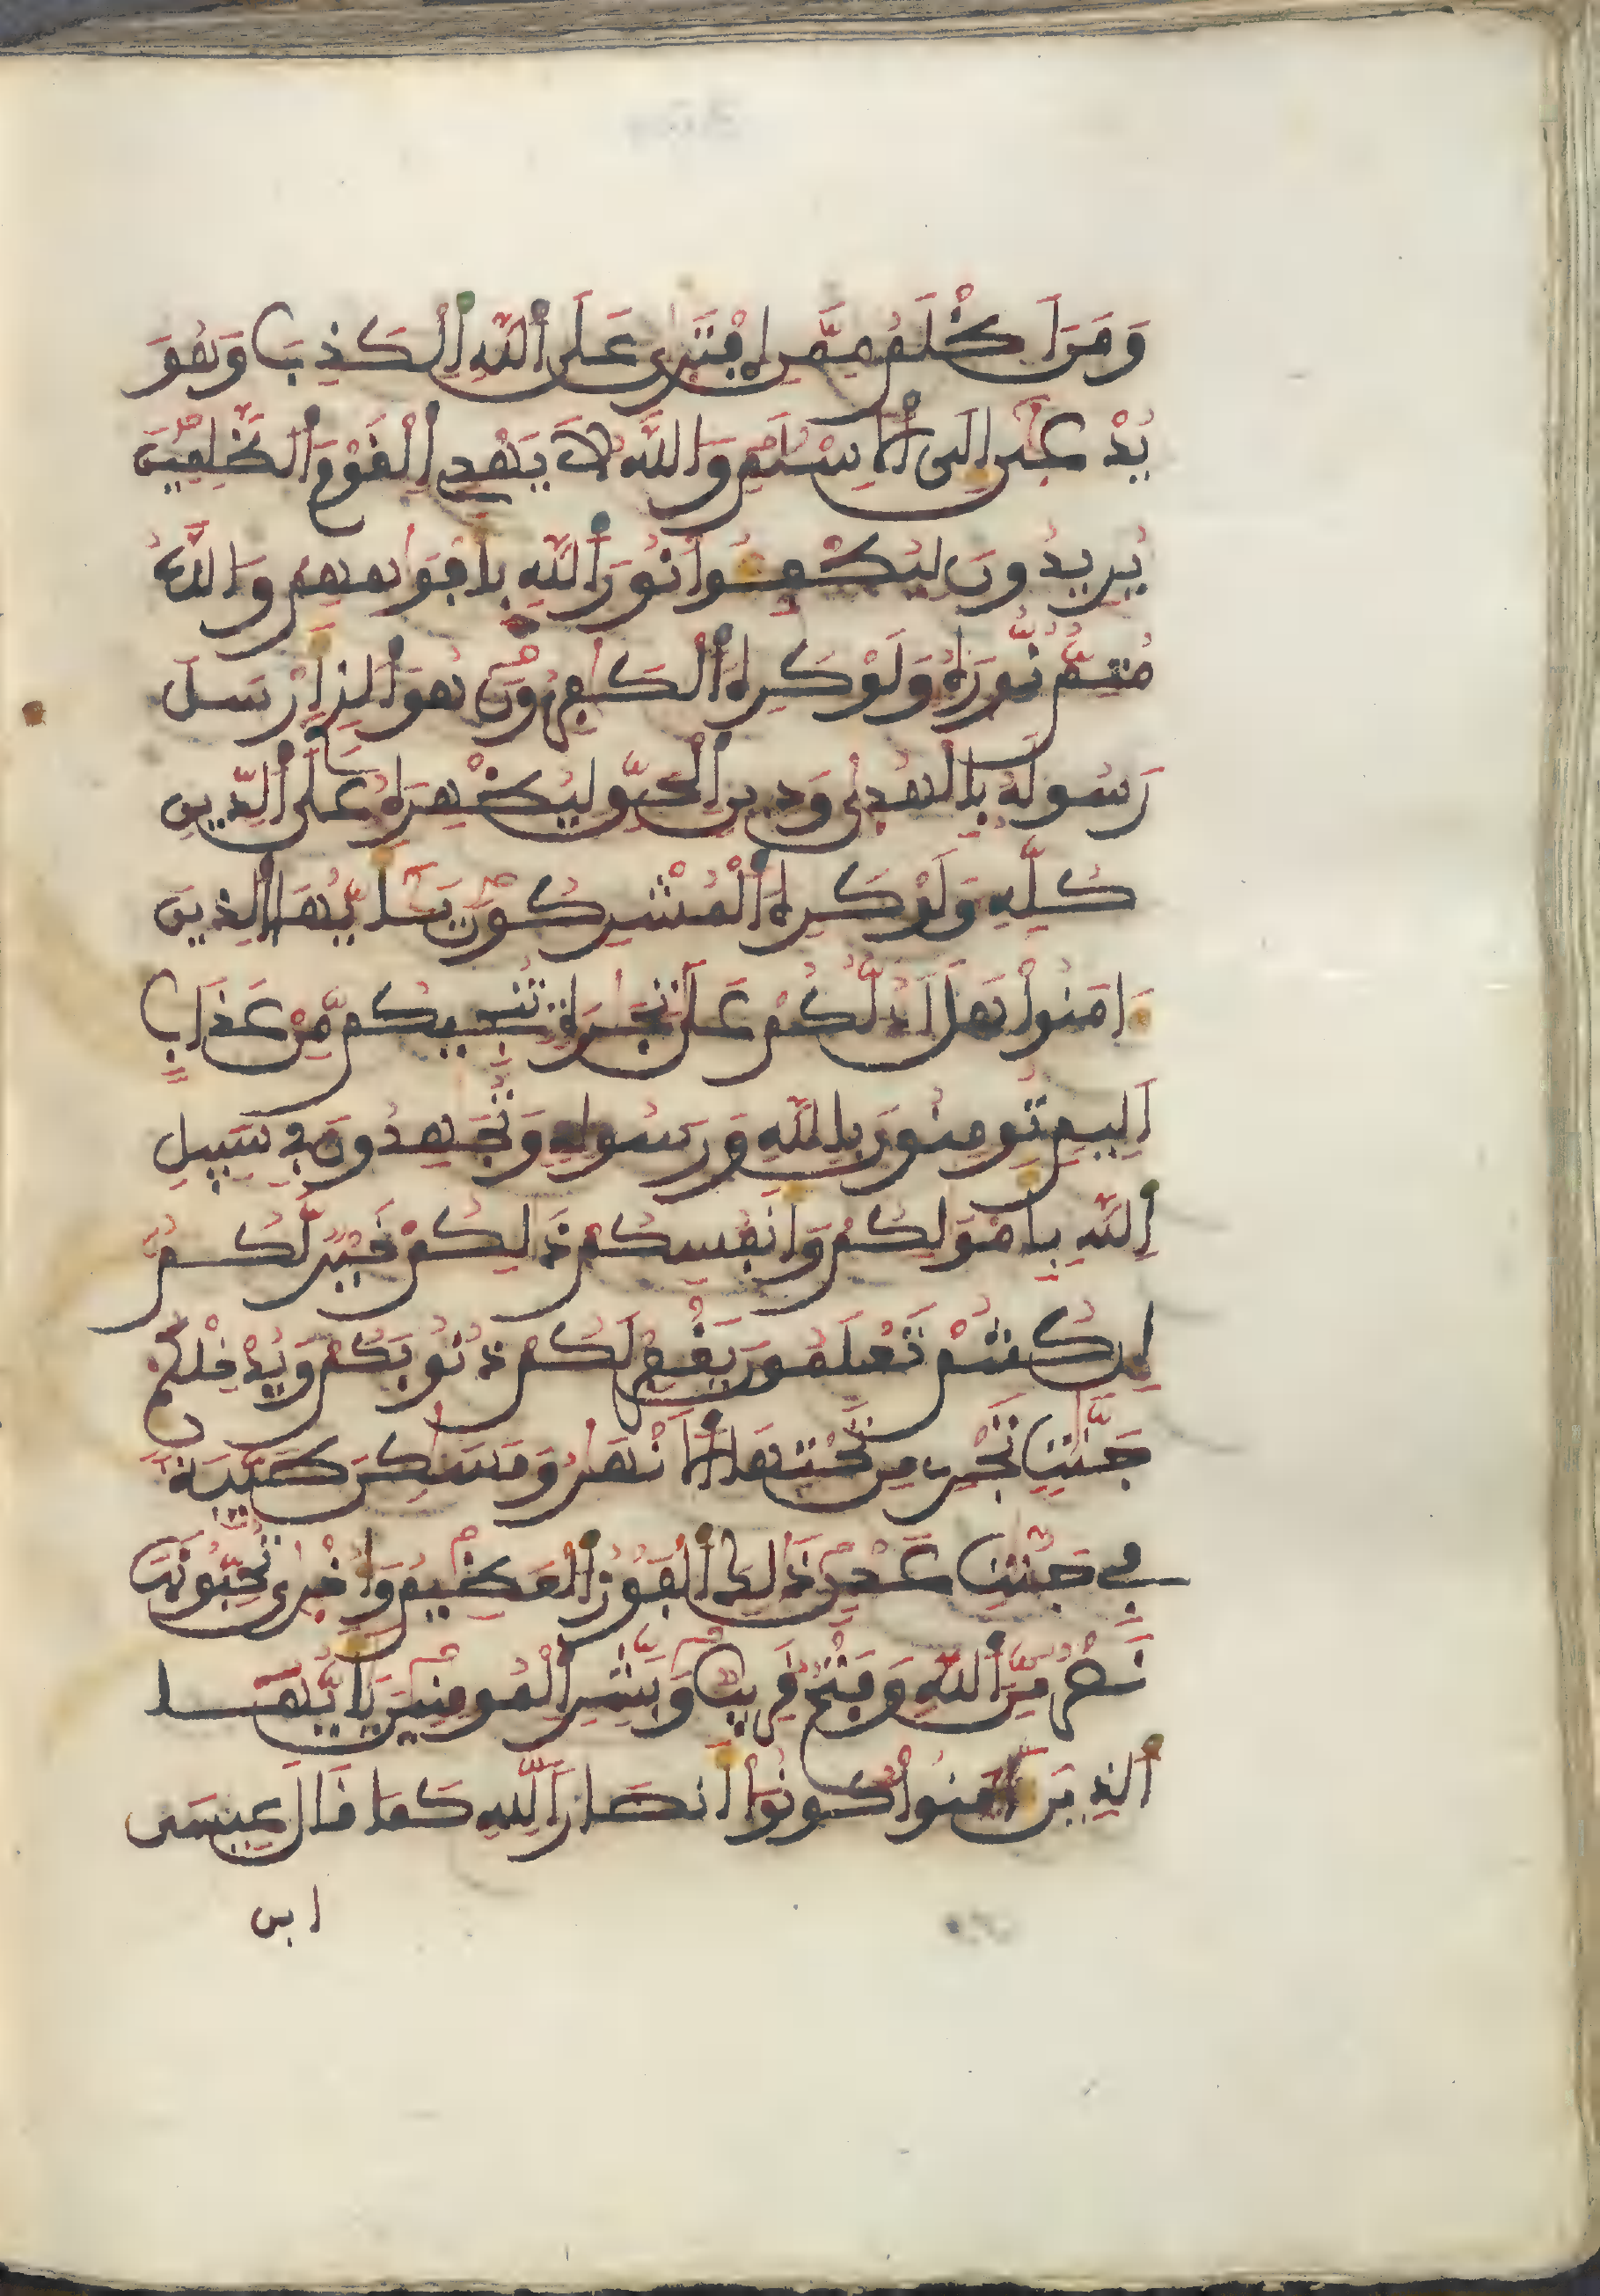 وَمَنَ اَظْلَمُ مِمَّنِ اِفْتَرىٰ عَلَى اَللَّهِ اِلْكَذِبَ وَهُوَ
يُدْعىٰٓ إِلَى اَلْاِسْلَٰمِ وَاللَّهُ لَا يَهْدِے اِلْقَوْمَ اَلظَّٰلِمِينَ
يُرِيدُونَ لِيُطْفِـُٔوا نُورَ اَللَّهِ بِأَفْوَٰهِهِمْ وَاللَّهُ
مُتِمٌّ نُّورَهُۥ وَلَوْ كَرِهَ اَلْكَٰفِرُونَ هُوَ اَلذِےٓ أَرْسَلَ
رَسُولَهُۥ بِالْهُدىٰ وَدِينِ اِلْحَقِّ لِيُظْهِرَهُۥ عَلَى اَلدِّينِ
كُلِّهِۦ وَلَوْ كَرِهَ اَلْمُشْرِكُونَ يَٰٓأَيُّهَا اَلذِينَ
ءَامَنُواْ هَلَ اَدُلُّكُمْ عَلَىٰ تِجَٰرَةٖ تُنجِيكُم مِّنْ عَذَابٍ
اَلِيمٖ تُومِنُونَ بِاللَّهِ وَرَسُولِهِۦ وَتُجَٰهِدُونَ فِے سَبِيلِ
اِللَّهِ بِأَمْوَٰلِكُمْ وَأَنفُسِكُمْ ذَٰلِكُمْ خَيْرٞ لَّكُمُۥٓ
إِن كُنتُمْ تَعْلَمُونَ يَغْفِرْ لَكُمْ ذُنُوبَكُمْ وَيُدْخِلْكُمْ
جَنَّٰتٖ تَجْرِے مِن تَحْتِهَا اَلَانْهَٰرُ وَمَسَٰكِنَ طَيِّبَةٗ
فِے جَنَّٰتِ عَدْنٖ ذَٰلِكَ اَلْفَوْزُ اُلْعَظِيمُ وَأُخْرىٰ تُحِبُّونَهَا
نَصْرٞ مِّنَ اَللَّهِ وَفَتْحٞ قَرِيبٞ وَبَشِّرِ اِلْمُومِنِينَ يَٰٓأَيُّهَا
اَلذِينَ ءَامَنُواْ كُونُوٓاْ أَنصَاراٗ لِّلهِ كَمَا قَالَ عِيسَى
ابن